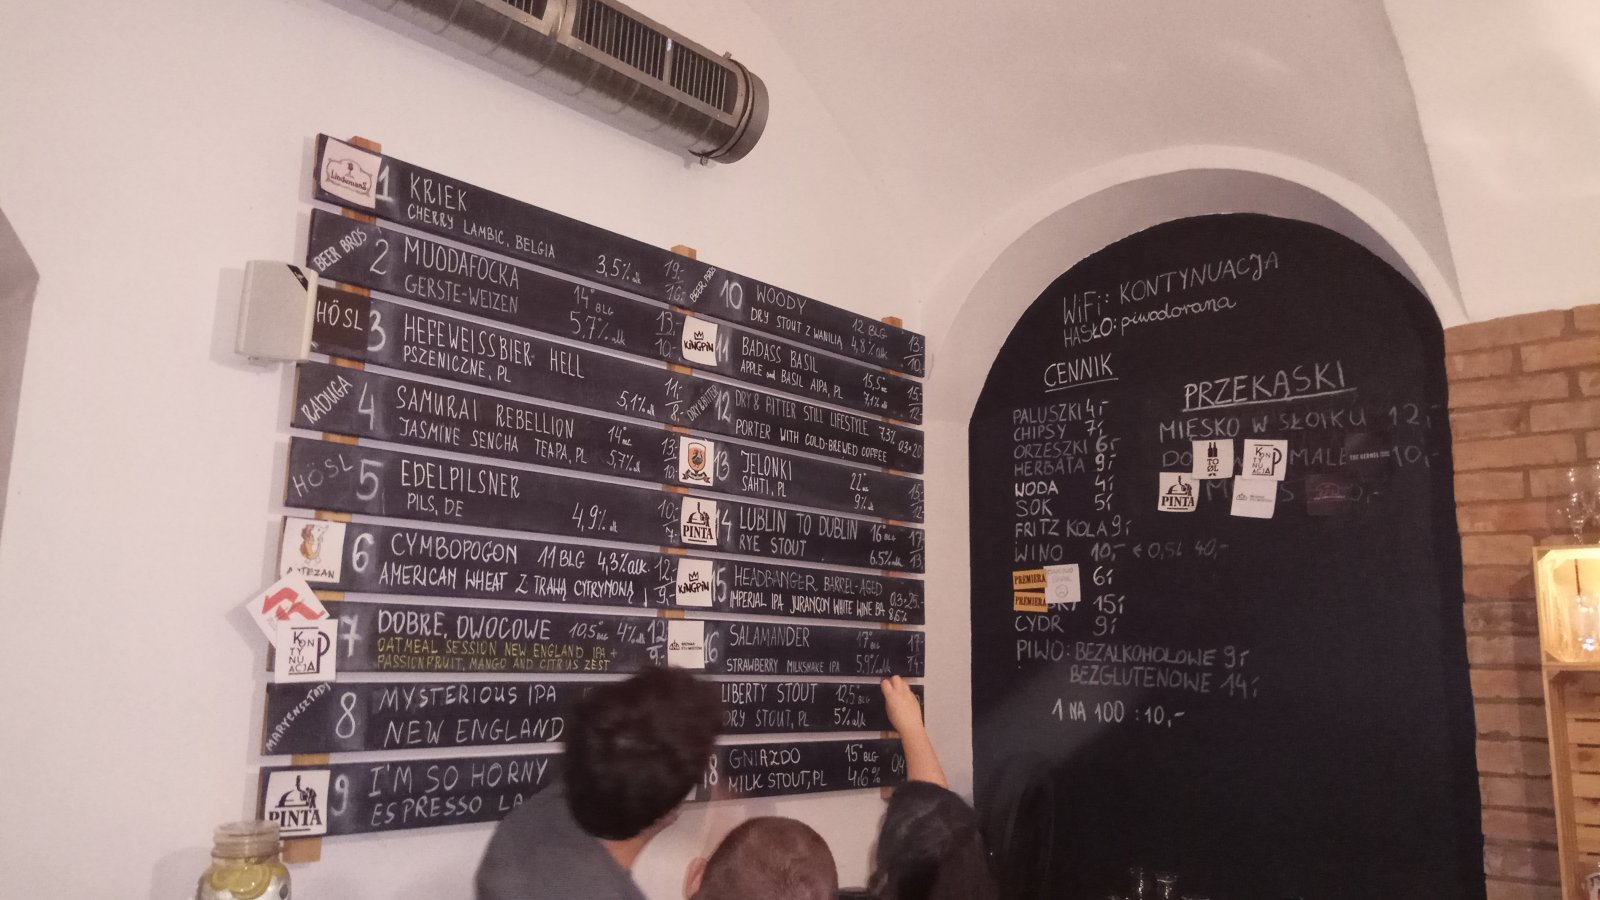 Lindemans
1 KRIEK
CHERRY LAMBIC, BELGIA 3,5% alk 19,- 10,-
BEER BROS 2 MUODAFOCKA 14° BLG 13,-
GERSTE-WEIZEN 5,7% alk 10,-
HÖSL 3 HEFEWEISSBIER HELL 11,-
PSZENICZNE, PL 5,1% alk 8,-
RADUGA 4 SAMURAI REBELLION 14° BLG 13,-
JASMINE SENCHA TEAPA, PL 5,7% alk 10,-
HÖSL 5 EDELPILSNER 10,-
PILS, DE 4,9% alk 7,-
ARTEZAN 6 CYMBOPOGON 11 BLG 4,3% alk. 12,-
AMERICAN WHEAT Z TRAWĄ CYTRYNOWĄ 9,-
KONTYNUACJA 7 DOBRE, OWOCOWE 10,5° BLG 4% alk 12
OATMEAL SESSION NEW ENGLAND IPA + 9,-
PASSIONFRUIT, MANGO AND CITRUS ZEST
MARYENSZTADT 8 MYSTERIOUS IPA
NEW ENGLAND
PINTA 9 I'M SO HORNY
ESPRESSO
BEER BROS 10 WOODY 12 BLG 13,-
DRY STOUT Z WANILIĄ 4,8% alk 10,-
KINGPIN 11 BADASS BASIL 15,5° BLG 15,-
APPLE and BASIL AIPA, PL 7,1% alk 12
DRY & BITTER 12 DRY & BITTER STILL LIFESTYLE 7,3%
PORTER WITH COLD-BREWED COFFEE 0.3=20
13 JELONKI 22° BLG 15,-
SAHTI, PL 9% alk 12,-
PINTA 14 LUBLIN TO DUBLIN 16° BLG 17,-
RYE STOUT 6.5% alk 13,-
KINGPIN 15 HEADBANGER BARREL-AGED 0.3=25,-
IMPERIAL IPA JURANÇON WHITE WINE BA 8,6%
16 SALAMANDER 17° BLG 17,-
STRAWBERRY MILKSHAKE IPA 5,9% alk 14,-
LIBERTY STOUT 12,5° BLG
DRY STOUT, PL 5% alk
18 GNIAZDO 15° BLG
MILK STOUT, PL 4,6%
WiFi: KONTYNUACJA
HASŁO: piwodorana
CENNIK
PALUSZKI 4,-
CHIPSY 7,-
ORZESZKI 6,-
HERBATA 9,-
WODA 4,-
SOK 5,-
FRITZ KOLA 9,-
WINO 10,- ← 0,5L 40,-
PREMIERA 6,-
PREMIERA 15,-
CYDR 9,-
PIWO: BEZALKOHOLOWE 9,-
BEZGLUTENOWE 14,-
1 NA 100 : 10,-
PRZEKĄSKI
MIĘSKO W SŁOIKU 12,-
MAŁE 10,-
TO ØL
KONTYNUACJA
THE KERNEL
PINTA